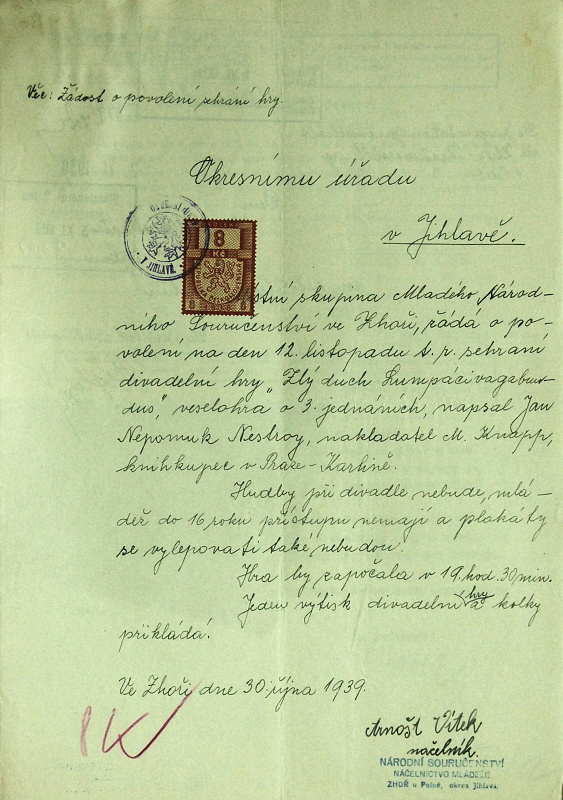 Věc: Žádost o povolení sehrání hry.
Okresnímu úřadu
v Jihlavě.
8
Kč
8 8
V JIHLAVĚ
Místní skupina Mladého Národ-
ního Souručenství ve Zhoři, žádá o po-
volení na den 12. listopadu t. r. sehraní
divadelní hry „Zlý duch Lumpácivagabun-
dus", veselohra o 3. jednáních, napsal Jan
Nepomuk Nestroy, nakladatel M. Knapp,
knihkupec v Praze-Karlíně.
Hudby při divadle nebude, mlá-
dež do 16 roků přístupu nemají a plakáty
se vylepovati také nebudou.
Hra by započala v 19. hod. 30 min.
Jeden výtisk divadelní hry a kolky
přikládá.
Ve Zhoři dne 30. října 1939.
Arnošt Vítek
náčelník.
NÁRODNÍ SOURUČENSTVÍ
NÁČELNICTVO MLÁDEŽE
ZHOŘ u Polné, okres Jihlava.